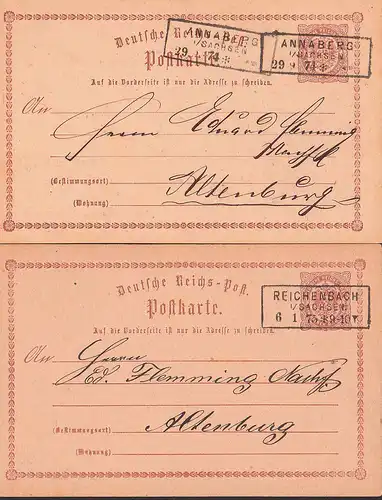 Deutsche Reichs-Post.
ANNABERG
I/SACHSEN
29 74 *
ANNABERG
I/SACHSEN
29 9 74 *
Postkarte
Auf die Vorderseite ist nur die Adresse zu schreiben.
An
Herrn Eduard Flemming
Nachf
(Bestimmungsort)
Altenburg
(Wohnung)
Deutsche Reichs-Post.
REICHENBACH
I/SACHSEN
6 1 75 * 9-10 V.
Postkarte.
Auf die Vorderseite ist nur die Adresse zu schreiben.
An
Herrn
Ed. Flemming Nachf
(Bestimmungsort)
Altenburg
(Wohnung)